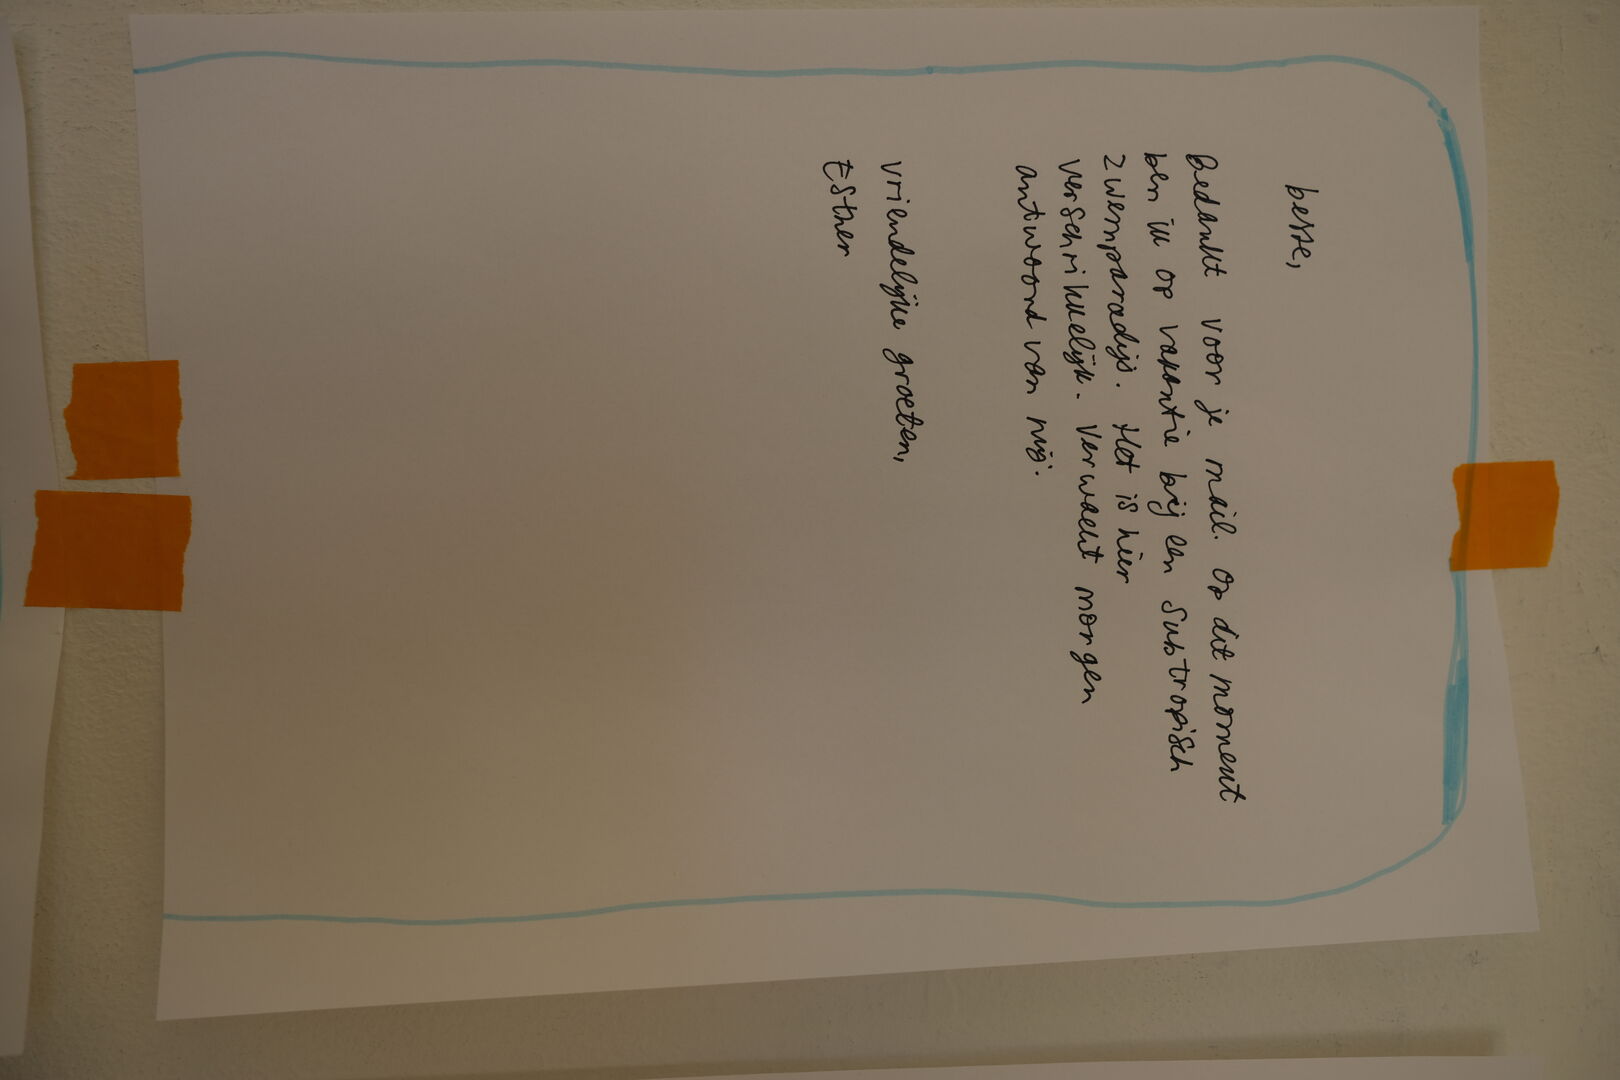 beste,
Bedankt voor je mail. Op dit moment
ben ik op vakantie bij een Subtropisch
zwemparadijs. Het is hier
verschrikkelijk. Verwacht morgen
antwoord van mij.
vriendelijke groeten,
Esther